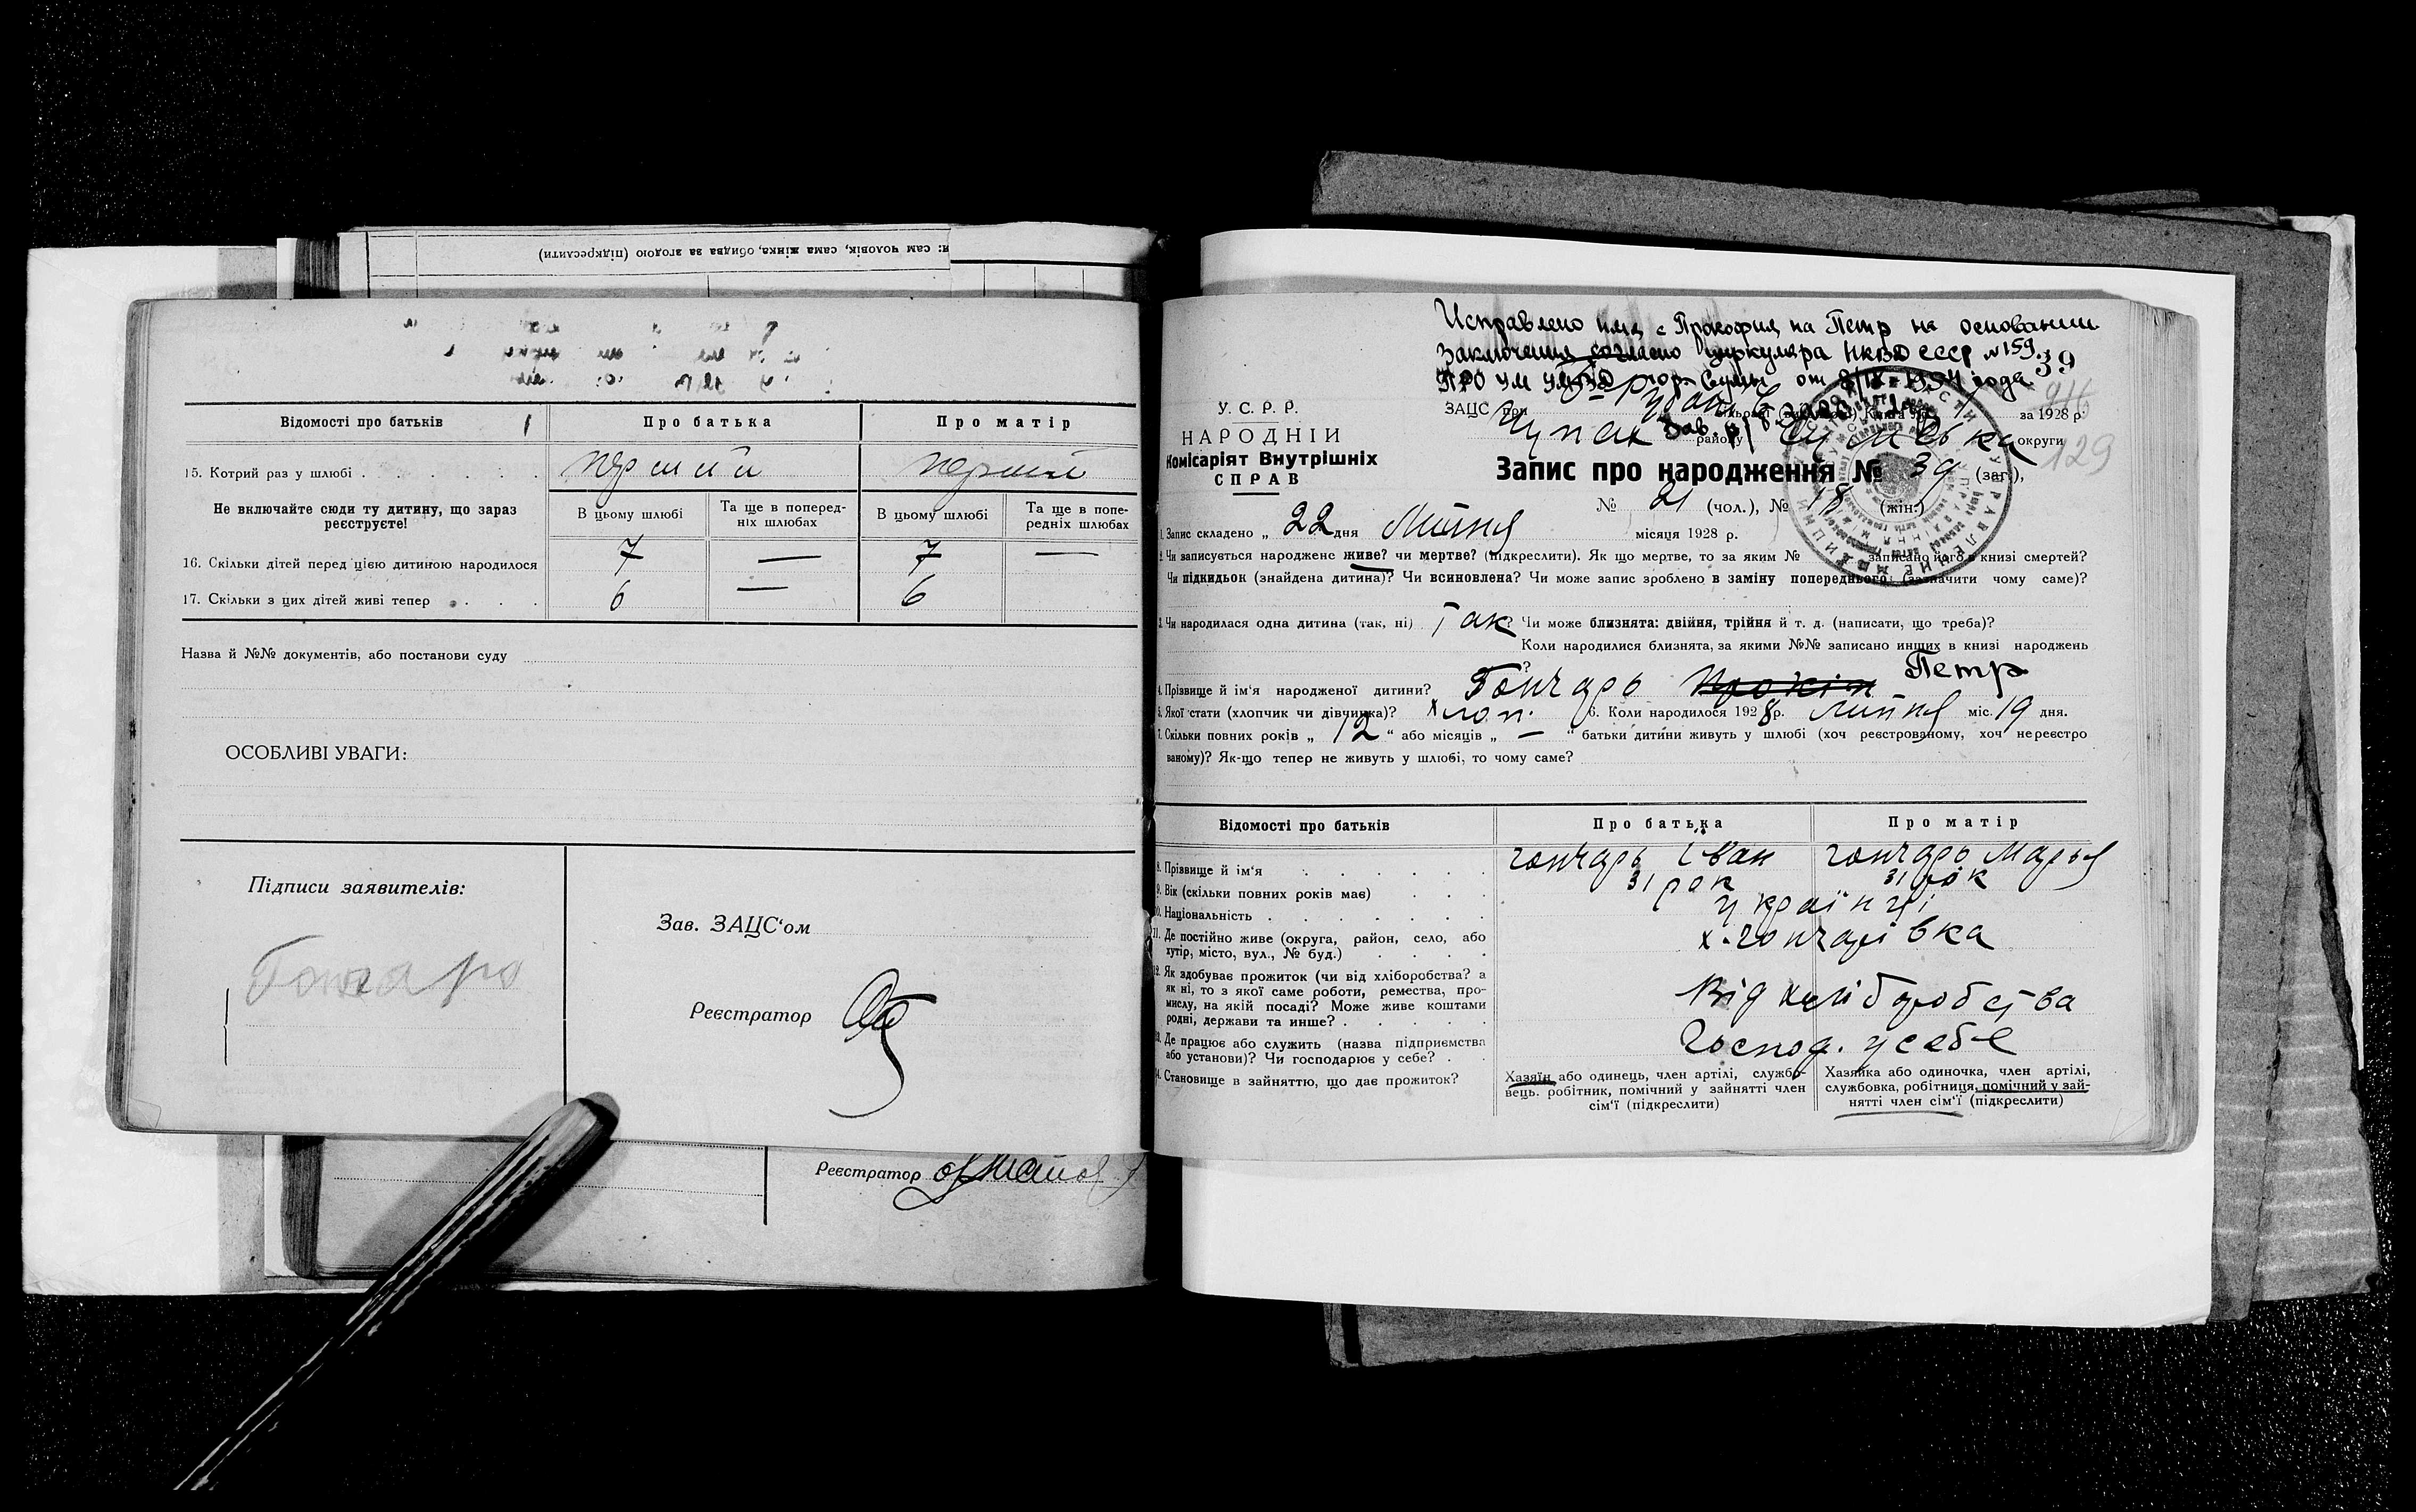 и: сам чоловік, сама жінка, обидва за згодою (підкреслити)
Відомості про батьків
Про батька
Про матір
15. Котрий раз у шлюбі
перший
перший
Не включайте сюди ту дитину, що зараз реєструєте!
В цьому шлюбі
Та ще в поперед-
ніх шлюбах
В цьому шлюбі
Та ще в попе-
редніх шлюбах
16. Скільки дітей перед цією дитиною народилося
7 — 7 —
17. Скільки з цих дітей живі тепер
6 — 6
Назва й №№ документів, або постанови суду
ОСОБЛИВІ УВАГИ:
Підписи заявителів:
Гончаро
Зав. ЗАЦС‘ом
Реєстратор
Реєстратор
Исправлено имя с Прокофия на Петр на основании
Заключения согласно циркуляра НКВД СССР №159.
гор. Сумы от 8/IX-1954 года
39
916
129
У. С. Р. Р.
НАРОДНІЙ
Комісаріят Внутрішніх
СПРАВ
ЗАЦС при
за 1928 р.
району
Сумська округи
Запис про народження № 39 (заг.),
№ 21 (чол.), № 18 (жін.)
1. Запис складено „ 22 дня Липня місяця 1928 р.
2. Чи записується народжене живе? чи мертве? (підкреслити). Як що мертве, то за яким № записано його в книзі смертей?
Чи підкидьок (знайдена дитина)? Чи всиновлена? Чи може запис зроблено в заміну попереднього (зазначити чому саме)?
3. Чи народилася одна дитина (так, ні) Так? Чи може близнята: двійня, трійня й т. д. (написати, що треба)?
Коли народилися близнята, за якими №№ записано инших в книзі народжень
?
4. Прізвище й ім‘я народженої дитини? Гончарь Прокіп Петр
5. Якої стати (хлопчик чи дівчинка)? Хлоп. 6. Коли народилося 1928 р. Липня міс. 19 дня.
7. Скільки повних років „ 12 “ або місяців „ — “ батьки дитини живуть у шлюбі (хоч реєстрованому, хоч нереєстро
ваному)? Як-що тепер не живуть у шлюбі, то чому саме?
Відомості про батьків
Про батька
Про матір
8. Прізвище й ім‘я
Гончарь Іван
Гончарь Марья
9. Вік (скільки повних років має)
31 рок
31 рок
10. Національність
Українці
11. Де постійно живе (округа, район, село, або
хутір, місто, вул., № буд.)
х. Гончарівка
12. Як здобуває прожиток (чи від хліборобства? а
як ні, то з якої саме роботи, ремества, про-
мислу, на якій посаді? Може живе коштами
родні, держави та инше?
Від хліборобства
13. Де працює або служить (назва підприємства
або установи)? Чи господарює у себе?
Господ. у себе
14. Становище в зайняттю, що дає прожиток?
Хазяїн або одинець, член артілі, службо-
вець. робітник, помічний у зайнятті член
сім‘ї (підкреслити)
Хазяйка або одиночка, член артілі,
службовка, робітниця, помічний у зай-
нятті член сім‘ї (підкреслити)